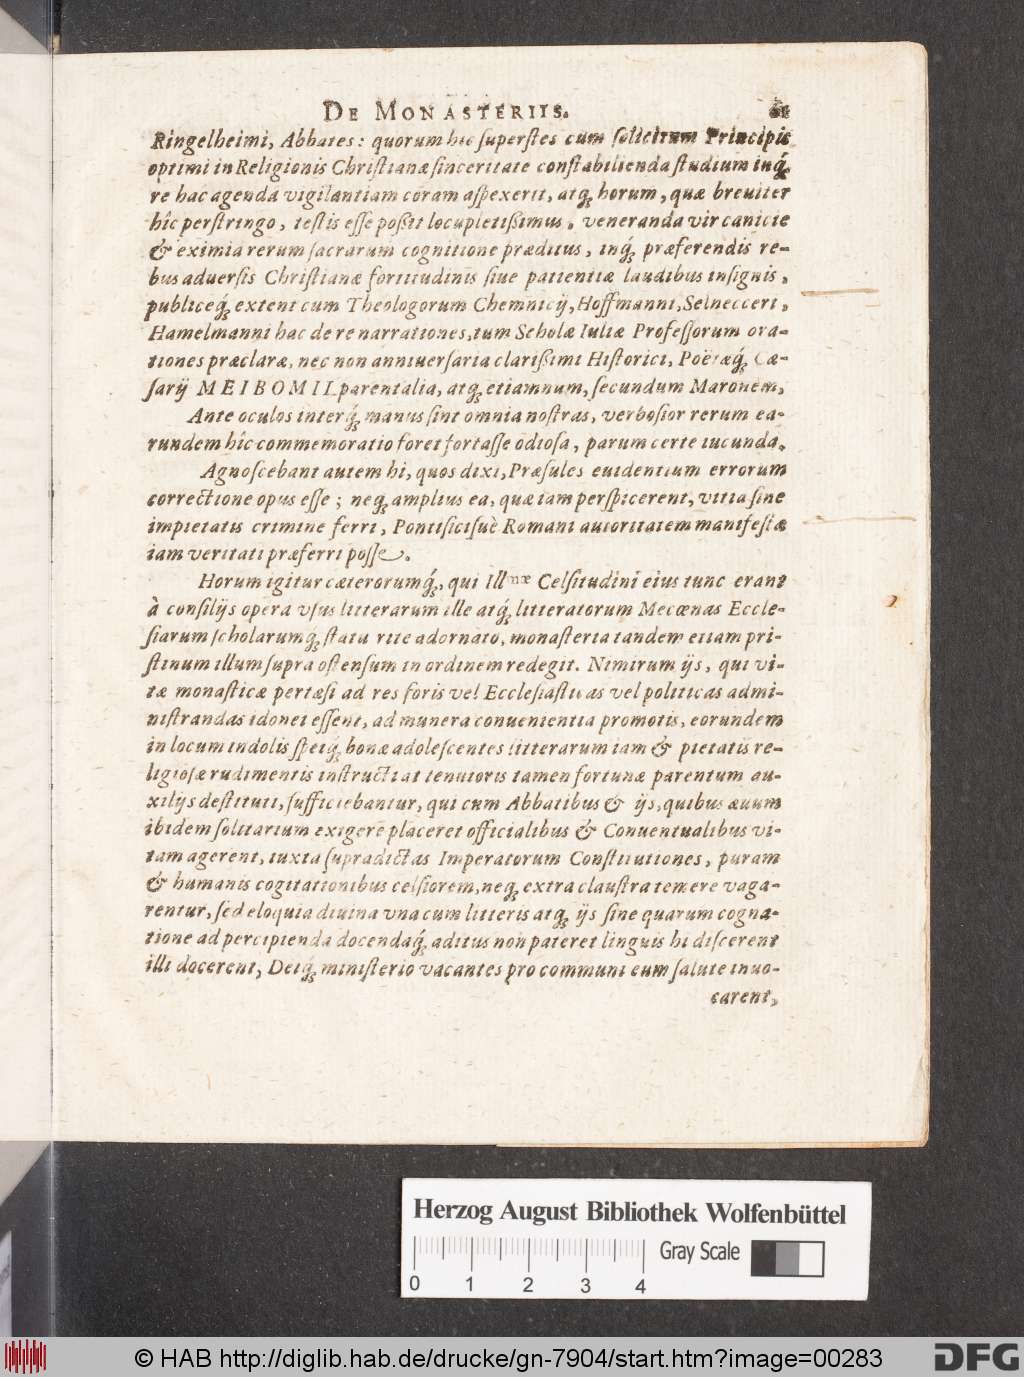 DE MONASTERIIS. 61
Ringelheimi, Abbates: quorum hic ſuperſtes cum ſolicitum Principis
optimi in Religionis Chriſtianæ ſinceritate conſtabilienda ſtudium inq́;
re hac agenda vigilantiam coram aſpexerit, atq; horum, quæ breuiter
hîc perſtringo, teſtis eſſe poßit locupletißimus, veneranda vir canicie
& eximia rerum ſacrarum cognitione præditus, inq́; præferendis re-
bus aduerſis Chriſtianæ fortitudinis ſiue patientiæ laudibus inſignis,
publiceq́; extent cum Theologorum Chemnicij, Hoffmanni, Selnecceri,
Hamelmanni hac de re narrationes, tum Scholæ Iuliæ Profeſſorum ora-
tiones præclaræ, nec non anniuerſaria clarißimi Hiſtorici, Poëtæq́; Cæ-
ſarij MEIBOMII parentalia, atq; etiamnum, ſecundum Maronem,
Ante oculos interq́; manus ſint omnia noſtras, verboſior rerum ea-
rundem hîc commemoratio foret fortaſſe odioſa, parum certe iucunda.
Agnoſcebant autem hi, quos dixi, Præſules euidentium errorum
correctione opus eſſe; neq; amplius ea, quæ iam perſpicerent, vitia ſine
impietatis crimine ferri, Pontificiſuè Romani autoritatem manifeſtæ
iam veritati præferri poſſe.
Horum igitur cæterorumq́;, qui Illnæ Celſitudini eius tunc erant
à conſilijs opera vſus litterarum ille atq́; litteratorum Mecœnas Eccle-
ſiarum ſcholarumq; ſtatu rite adornato, monaſteria tandem etiam pri-
ſtinum illum ſupra oſtenſum in ordinem redegit. Nimirum ijs, qui vi-
tæ monaſticæ pertæſi ad res foris vel Eccleſiaſticas vel politicas admi-
niſtrandas idonei eſſent, ad munera conuenientia promotis, eorundem
in locum indolis ſpeiq́; bonæ adoleſcentes litterarum iam & pietatis re-
ligioſæ rudimentis inſtructi at tenuioris tamen fortunæ parentum au-
xilijs deſtituti, ſufficiebantur, qui cum Abbatibus & ijs, quibus æuum
ibidem ſolitarium exigere placeret officialibus & Conuentualibus vi-
tam agerent, iuxta ſupradictas Imperatorum Conſtitutiones, puram
& humanis cogitationibus celſiorem, neq; extra clauſtra temere vaga-
rentur, ſed eloquia diuina vna cum litteris atq; ijs ſine quarum cogna-
tione ad percipienda docendaq́; aditus non pateret linguis hi diſcerent
illi docerent, Deiq́; miniſterio vacantes pro communi eum ſalute inuo-
carent,
Herzog August Bibliothek Wolfenbüttel
0 1 2 3 4 Gray Scale
© HAB http://diglib.hab.de/drucke/gn-7904/start.htm?image=00283
DFG